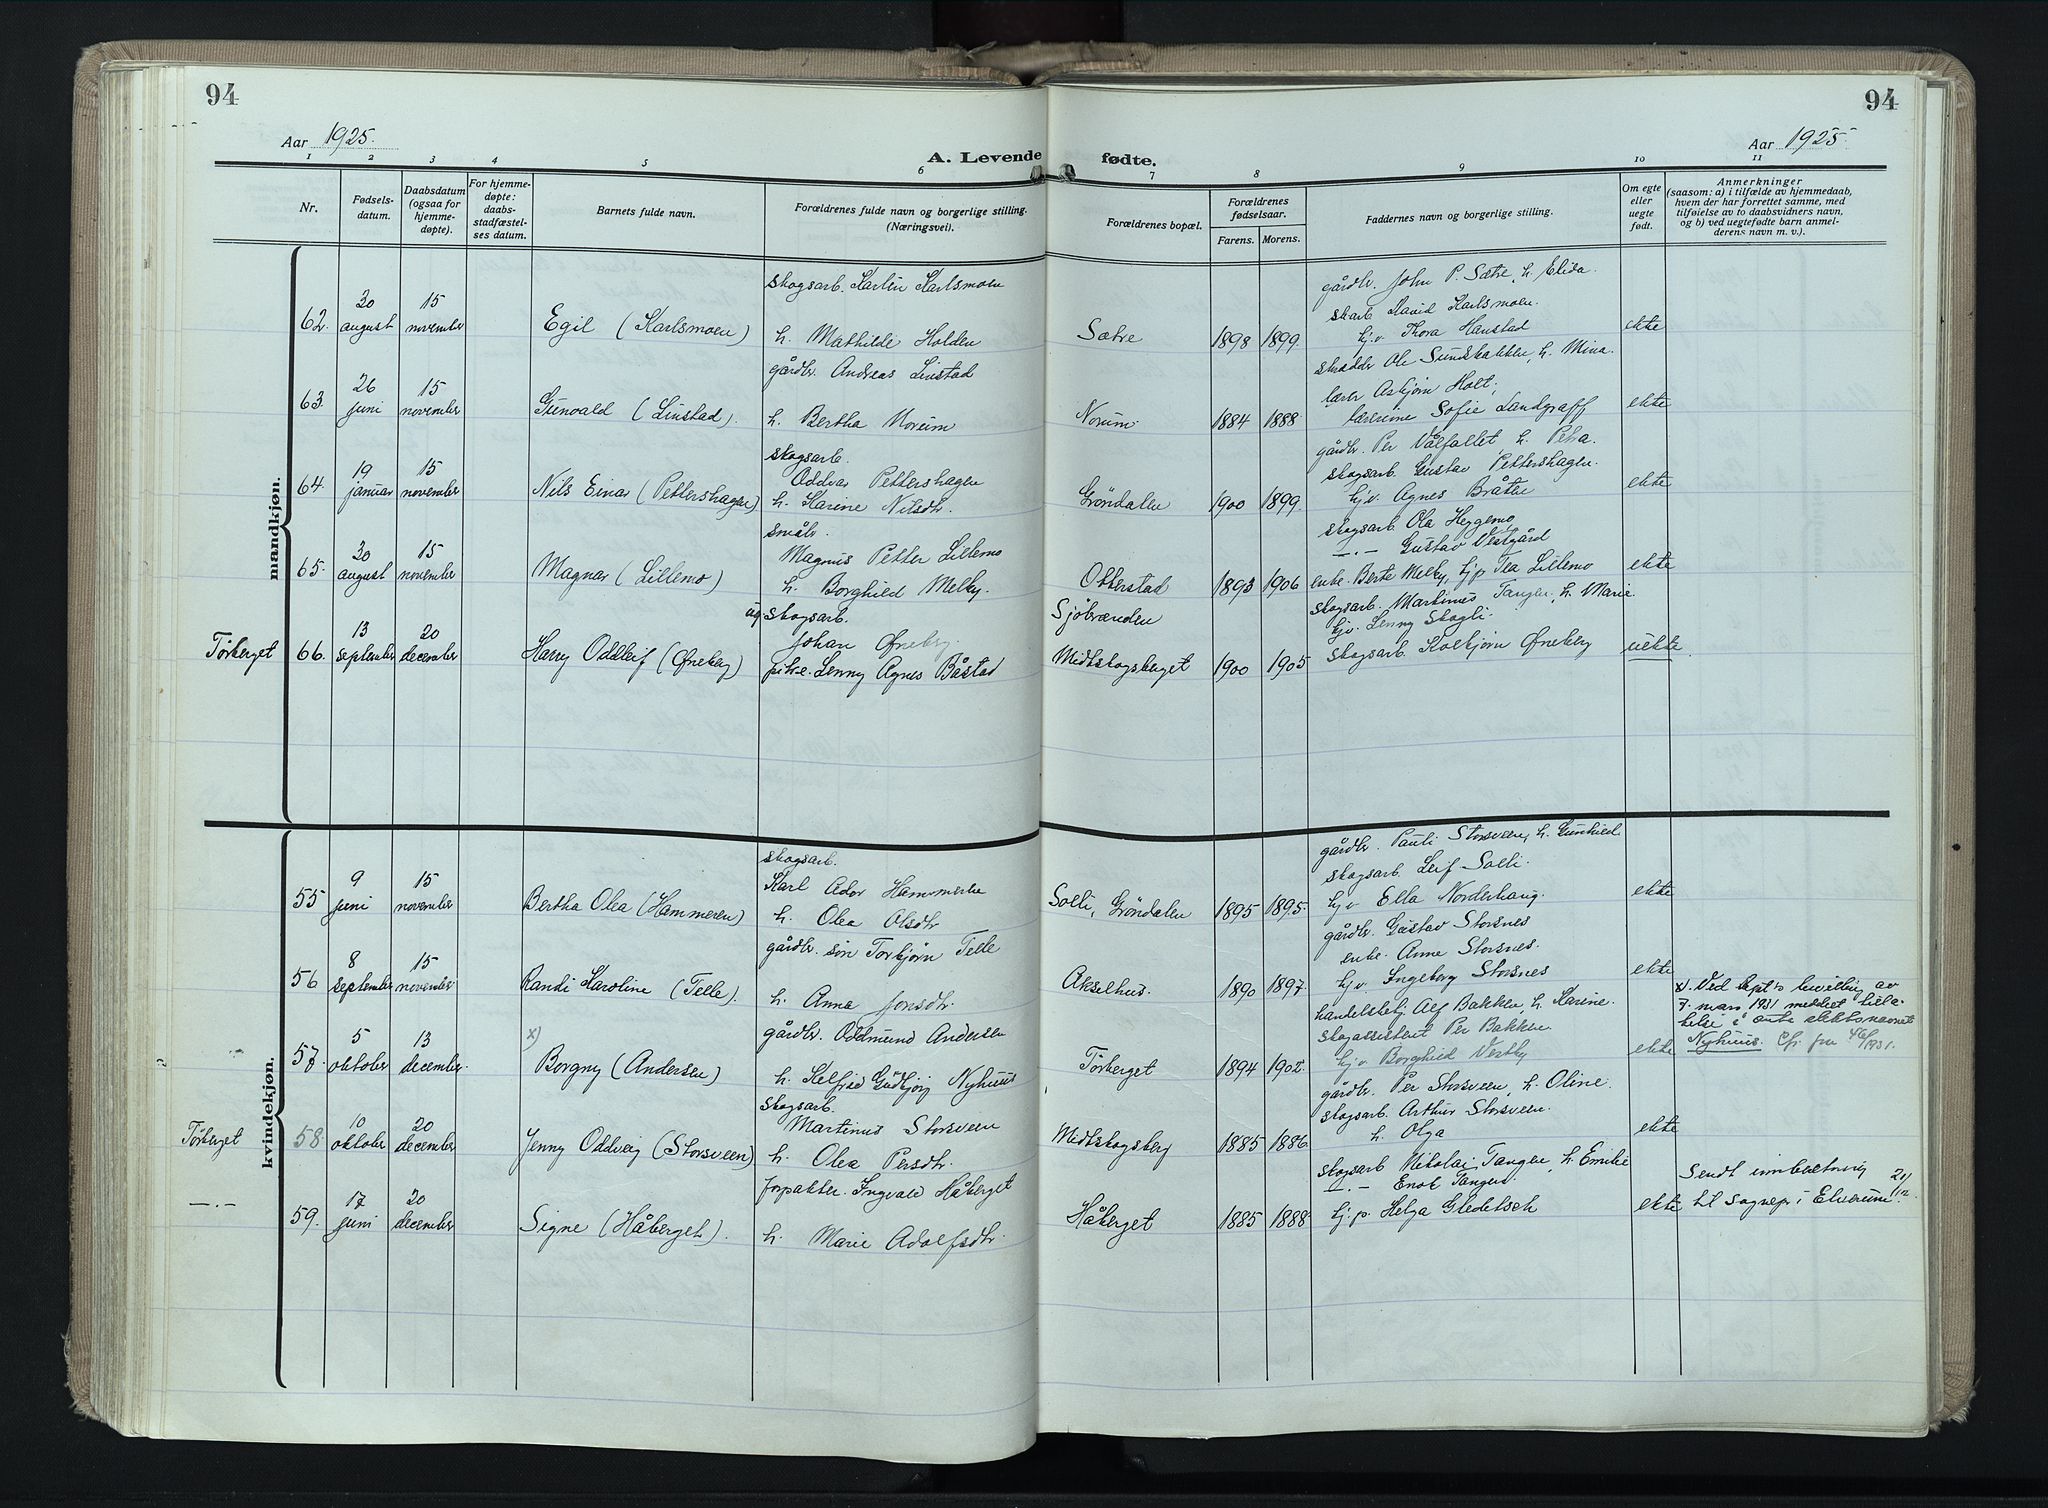 94
94
Aar 1925.
Aar 1925
A. Levende fødte.
1 2 3 4 5 6 7 8 9 10 11
Nr.
Fødsels-
datum.
Daabsdatum
(ogsaa for
hjemme-
døpte).
For hjemme-
døpte:
daabs-
stadfæstel-
ses datum.
Barnets fulde navn.
Forældrenes fulde navn og borgerlige stilling.
(Næringsvei).
Forældrenes bopæl.
Forældrenes
fødselsaar.
Farens. Morens.
Faddernes navn og borgerlige stilling.
Om egte
eller
uegte
født.
Anmerkninger
(saasom: a) i tilfælde av hjemmedaab,
hvem der har forrettet samme, med
tilføielse av to daabsvidners navn,
og b) ved uegtefødte barn anmel-
derens navn m. v.).
mandkjøn.
62. 30 august 15 november Egil (Karlsmoen)
skogsarb. Karlin Karlsmoen
h. Mathilde Holden
Sætre 1898 1899.
gårdbr. John P. Sætre, h. Elida.
skarb David Karlsmoen.
hj.v. Thora Hanstad
skrædder Ole Sundbakken, h. Mina.
ekte
63. 26 juni 15 november Gunvald (Linstad).
gårdbr. Andreas Linstad
h. Bertha Norum
Norum. 1884 1888
lærer Asbjørn Holt;
lærerinne Sofie Landgraff
gårdbr. Per Vålfallet h. Petra.
ekte
64. 19 januar 15 november Nils Einar (Pettershagen)
skogsarb.
Oddvar Pettershagen
h. Karine Nilsdtr.
Grøndalen 1900 1899.
skogsarb. Gustav Pettershagen.
hj.v. Agnes Bråten
skogsarb. Ola Heggemo
ekte
65. 30 august 15 november Magnar (Lillemo)
småbr.
Magnus Petter Lillemo
h. Borghild Melby.
Otterstad 1893 1906
—.— Gustav Vestgård
enke. Berte Melby, hj.p Tea Lillemo
ekte
Tørberget 66. 13 september 20 december Harry Oddleif (Øneberg)
ug. skogsarb.
Johan Øneberg.
pike. Lenny Agnes Båstad
Sjøbrænden
Midtskogsberget 1900 1905
skogsarb. Martinus Tangen, h. Marie
hj.v. Lenny Skogli.
skogsarb. Kolbjørn Øneberg
uekte.
kvindekjøn.
55 9 juni 15 november Bertha Olea (Hammeren)
skogsarb.
Karl Ador Hammeren
h. Olea Olsdtr
Solli, Grøndalen 1895 1895.
gårdbr. Pauli Storsveen, h. Gunhild
skogsarb. Leif Solli.
hj.v Ella Norderhaug.
ekte
56 8 september 15 november Randi Karoline (Telle).
gårdbr. søn Torbjørn Telle
h. Anna Jonsdtr.
Akselhus. 1890 1897.
gårdbr. Gustav Storsnes
enke. Anne Storsnes.
hj.v. Ingeborg Storsnes
ekte
57. 5 oktober 13 december. x) Borgny (Andersen)
gårdbr. Oddmund Andersen
h. Kelfrid Gudbjørg Nyhuus
Tørberget 1894 1902.
handelsbetj. Alf Bakken, h. Karine.
skogassistent Per Bakken.
hj.v. Borghild Vestby
ekte
x). Ved Dept's bevilling av
7. mars 1931 meddelt tilla-
telse i å anta slektsnavnet
Nyhuus. Cfr. fra 46/1931.
Tørberget 58. 10 oktober 20 december Jenny Oddveig (Storsveen)
skogsarb.
Martinus Storsveen
h. Olea Persdtr.
Midtskogsberg 1885 1886.
gårdbr. Per Storsveen, h. Oline.
skogsarb. Arthur Storsveen.
h. Olga
ekte
—.— 59. 17 juni 20 december Signe (Håberget).
forpakter. Ingvald Håberget
h. Marie Adolfsdtr.
Håberget 1885 1888
skogsarb Nikolai Tangen, h. Emilie
—.— Enok Tangen
hj.p. Helga Gledetsch
ekte
Sendt innberetning 21/12.
til sognepr. i Elverum